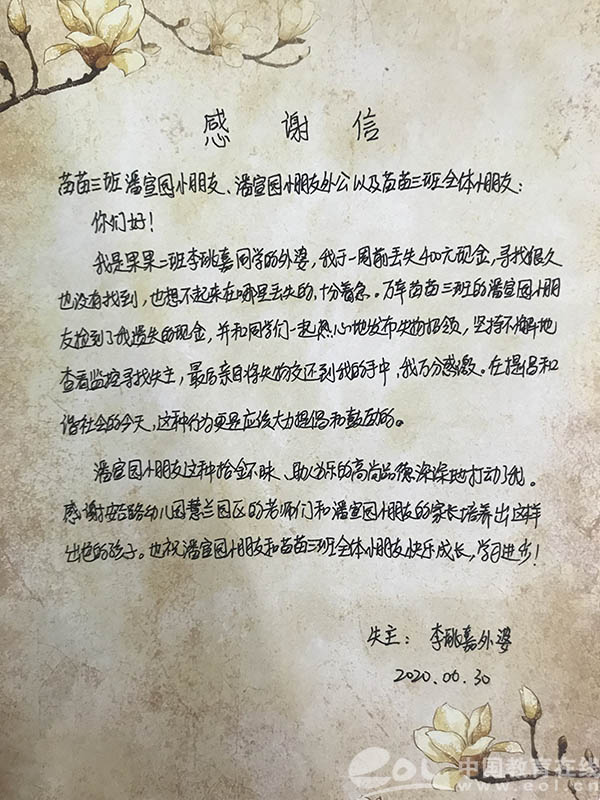 感谢信
苗苗三班潘宣园小朋友、潘宣园小朋友外公以及苗苗三班全体小朋友：
你们好！
我是果果二班李珧嘉同学的外婆，我于一周前丢失400元现金，寻找很久
也没有找到，也想不起来在哪里丢失的，十分着急。万幸苗苗三班的潘宣园小朋
友捡到了我遗失的现金，并和同学们一起热心地发布失物招领，坚持不懈地
查看监控寻找失主，最后亲自将失物交还到我的手中，我万分感激。在提倡和
谐社会的今天，这种行为更是应该大力提倡和鼓励的。
潘宣园小朋友这种拾金不昧、助人为乐的高尚品德深深地打动了我。
感谢安吉路幼儿园慧兰园区的老师们和潘宣园小朋友的家长培养出这样
出色的孩子。也祝潘宣园小朋友和苗苗三班全体小朋友快乐成长，学习进步！
失主：李珧嘉外婆
2020.06.30
eol 中国教育在线
www.eol.cn